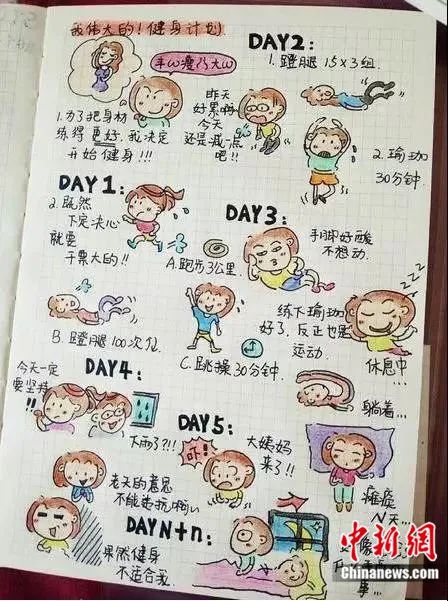 我伟大的!健身计划
1.为了把身材
练得更好,我决定
开始健身!!!
DAY2:
1.蹬腿 15×3组.
昨天
好累啊
今天
还是减一点
吧!!
2.瑜珈
30分钟.
DAY1:
2.既然
下定决心
就要
干票大的!!
A.跑步3公里.
B.蹬腿100次/位
C.跳操30分钟.
DAY3:
手脚好酸
不想动.
练下瑜珈
好了.反正也是
运动.
zzz
休息中...
躺着...
DAY4:
今天一定
要坚持!!
下雨了?!!
老天的意思
不能违抗啊
DAY5:
吓!!
大姨妈
来了!!
瘫痪
N天...
DAYN+n:
果然健身
不适合我.
中新网
Chinanews.com